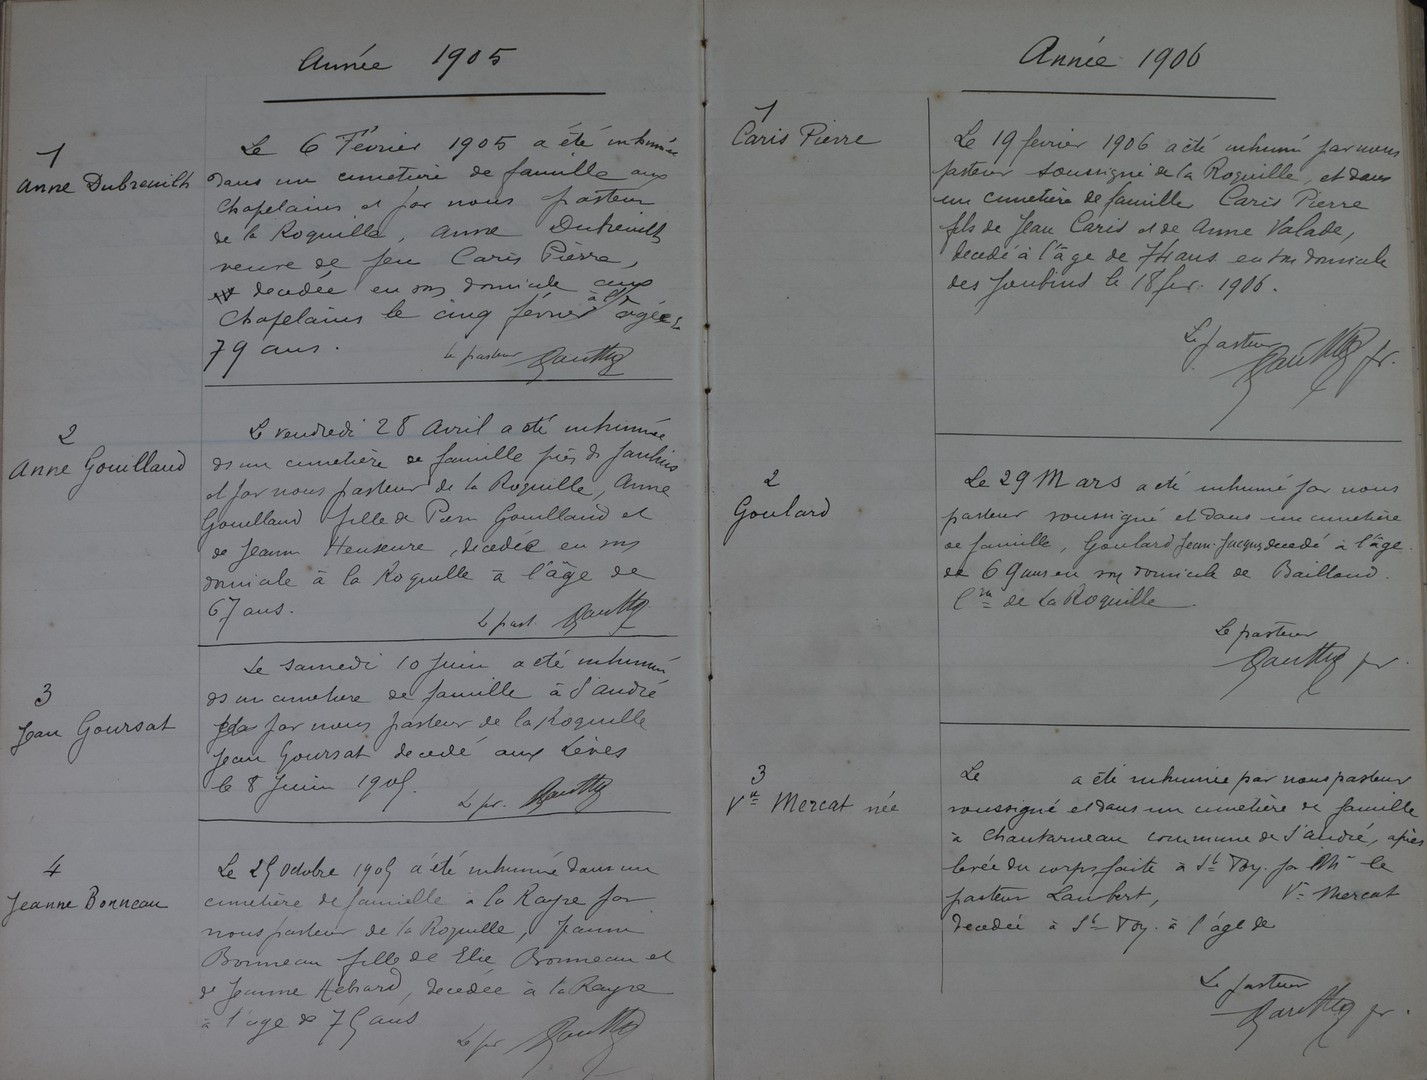 Année 1905
1
Anne Dubreuilh
Le 6 Février 1905 a été inhumée
dans un cimetière de famille aux
Chapelains et par nous pasteur
de la Roquille, Anne Dubreuilh
veuve de feu Caris Pierre,
decédée en son domicile aux
Chapelains le cinq février âgée
79 ans.
Le pasteur
2
Anne Gouilland
Le vendredi 28 Avril a été inhumée
ds un cimetière de famille près de
et par nous pasteur de la Roquille, Anne
Gouilland fille de Pierre Gouilland et
de Jeanne decédée en son
domicile à la Roquille à l'âge de
67 ans.
Le past.
3
Jean Goursat
Le samedi 10 Juin a été inhumé
ds un cimetière de famille à St André
par nous pasteur de la Roquille
Jean Goursat decedé aux Lèves
le 8 Juin 1905.
Le pr.
4
Jeanne Bonneau
Le 25 Octobre 1905 a été inhumé dans un
cimetière de famille à la Rayre par
nous pasteur de la Roquille, Jeanne
Bonneau fille de Elie Bonneau et
de Jeanne Hébrard, decédée à la Rayre
à l'age de 75 ans
Le pr
Année 1906
1
Caris Pierre
Le 19 fevrier 1906 a été inhumé par nous
pasteur soussigné de la Roquille, et dans
un cimetière de famille, Caris Pierre
fils de Jean Caris et de Anne Valade,
decedé à l'âge de 74 ans en son domicile
des le 18 fev. 1906.
Le pasteur
2
Goulard
Le 29 Mars a été inhumé par nous
pasteur soussigné et dans un cimetière
de famille, Goulard Jean-Jacques decedé à l'âge
de 69 ans en son domicile de Bailland.
Cne de La Roquille.
Le pasteur
3
Vve Mercat née
Le a été inhumée par nous pasteur
soussigné et dans un cimetière de famille
à Chantarneau commune de St André, après
levée du corps faite à Ste Foy. par Mr le
pasteur Lambert, Ve Mercat
decedée à Ste Foy. à l'âge de
Le pasteur